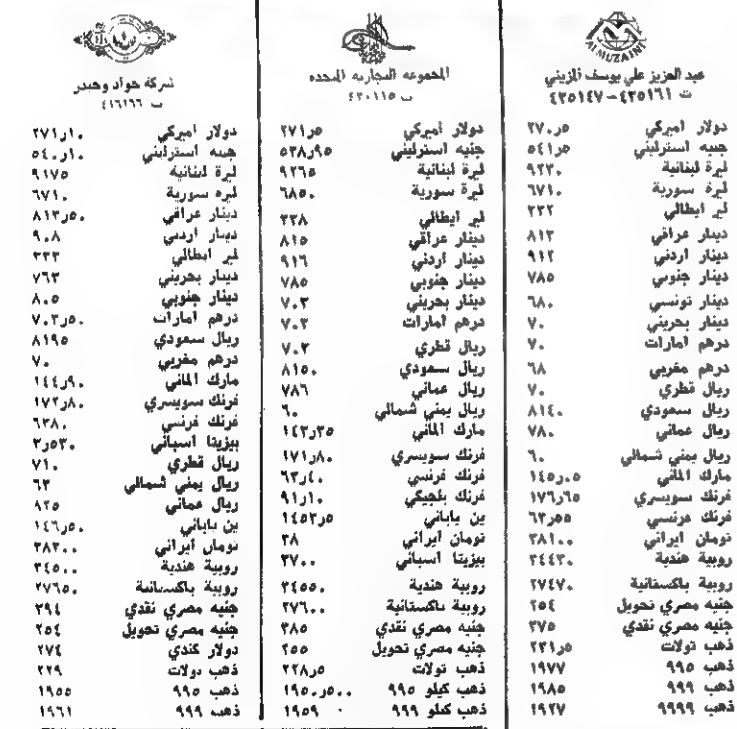 ALMUZAINI
عبد العزيز علي يوسف المزيني
ت ٤٣٥١٦١ – ٤٣٥١٤٧
دولار اميركي ٥ر٢٧٠
جنيه استرليني ٥ر٥٤١
ليرة لبنانية ٩٢٣٠
ليرة سورية ٦٧١٠
لير ايطالي ٢٣٢
دينار عراقي ٨١٣
دينار اردني ٩١٢
دينار جنوبي ٧٨٥
دينار تونسي ٦٨٠
دينار بحريني ٧٠
درهم امارات ٧٠
درهم مغربي ٦٨
ريال قطري ٧٠
ريال سعودي ٨١٤٠
ريال عماني ٧٨٠
ريال يمني شمالي ٦٠
مارك الماني ٠٥ر١٤٥
فرنك سويسري ٦٥ر١٧٦
فرنك فرنسي ٥٥ر٦٣
تومان ايراني ٣٨١٠٠
روبية هندية ٣٤٤٣٠
روبية باكستانية ٢٧٤٧٠
جنيه مصري تحويل ٢٥٤
جنيه مصري نقدي ٣٧٥
ذهب تولات ٥ر٢٣١
ذهب ٩٩٥ ١٩٧٧
ذهب ٩٩٩ ١٩٨٥
ذهب ٩٩٩٩ ١٩٢٧
المجموعه التجاريه المتحده
ت ٤٣٠١١٥
دولار اميركي ٥ر٢٧١
جنيه استرليني ٩٥ر٥٣٨
ليرة لبنانية ٩٢٦٥
ليرة سورية ٦٨٥٠
لير ايطالي ٢٣٨
دينار عراقي ٨١٥
دينار اردني ٩١٦
دينار جنوبي ٧٨٥
دينار بحريني ٧٠٣
درهم امارات ٧٠٣
ريال قطري ٧٠٣
ريال سعودي ٨١٥٠
ريال عماني ٧٨٦
ريال يمني شمالي ٦٠
مارك الماني ٣٥ر١٤٣
فرنك سويسري ٨٠ر١٧١
فرنك فرنسي ٤٠ر٦٣
فرنك بلجيكي ١٠ر٩١
ين ياباني ٥ر١٤٥٣
تومان ايراني ٣٨
بيزيتا اسباني ٣٧٠٠
روبية هندية ٣٤٥٥٠
روبية باكستانية ٢٧٦٠٠
جنيه مصري نقدي ٣٨٥
جنيه مصري تحويل ٢٥٥
ذهب تولات ٥ر٢٢٨
ذهب كيلو ٩٩٥ ٥٠٠ر١٩٥٠
ذهب كيلو ٩٩٩ ١٩٥٩
شركة جواد وحيدر
ت ٤١٦١٦٦
دولار اميركي ١٠ر٢٧١
جنيه استرليني ١٠ر٥٤٠
ليرة لبنانية ٩١٧٥
ليره سورية ٦٧١٠
دينار عراقي ٥٠ر٨١٣
دينار اردني ٩٠٨
لير ايطالي ٢٣٣
دينار بحريني ٧٦٣
دينار جنوبي ٨٠٥
درهم امارات ٥٠ر٧٠٣
ريال سعودي ٨١٩٥
درهم مغربي ٧٠
مارك الماني ٩٠ر١٤٤
فرنك سويسري ٨٠ر١٧٢
فرنك فرنسي ٦٣٨٠
بيزيتا اسباني ٥٣٠ر٣
ريال قطري ٧١٠
ريال يمني شمالي ٦٣
ريال عماني ٨٢٥
ين ياباني ٥٠ر١٤٦
تومان ايراني ٣٨٣٠٠
روبية هندية ٣٤٥٠٠
روبية باكستانية ٢٧٦٥٠
جنيه مصري نقدي ٣٩٤
جنيه مصري تحويل ٢٥٤
دولار كندي ٢٧٤
ذهب دولات ٢٢٩
ذهب ٩٩٥ ١٩٥٥
ذهب ٩٩٩ ١٩٦١